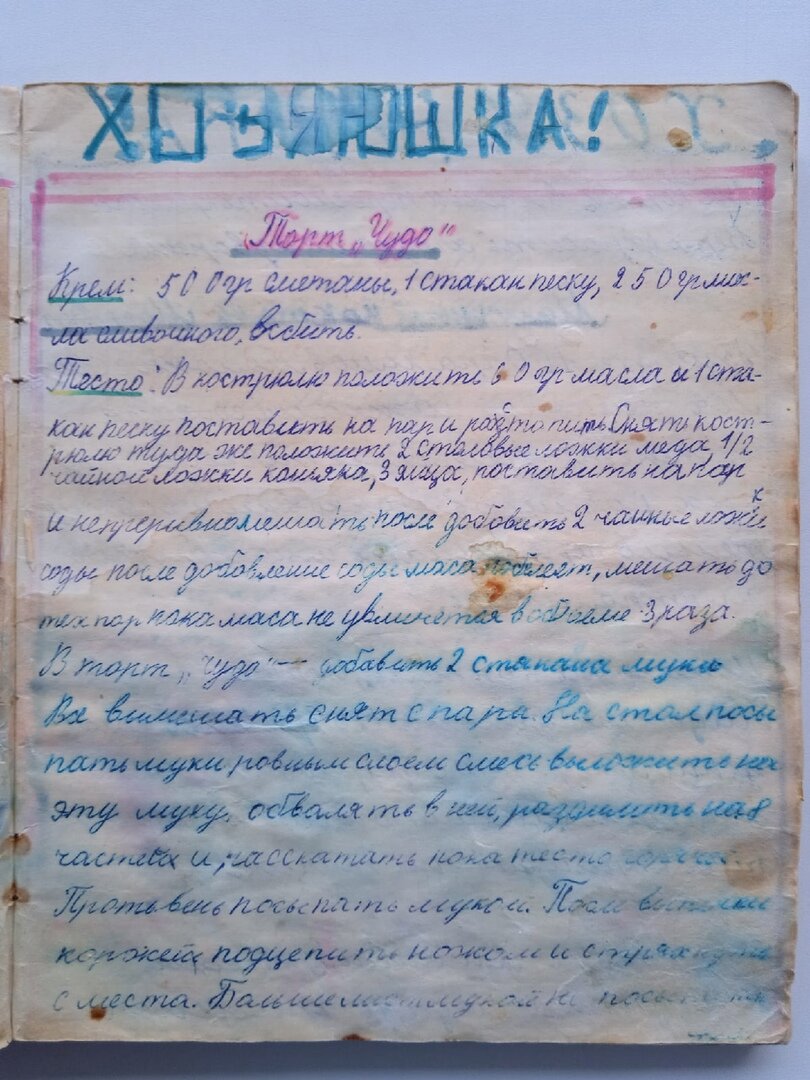 ХОЗЯЮШКА!
Торт „Чудо“
Крем: 500гр сметаны, 1 стакан песку, 250гр мас-
ла сливочного, взбить.
Тесто: В кострюлю положить 60 гр масла и 1 ста-
кан песку поставить на пар и растопить. Снять кост-
рюлю туда же положить 2 столовые ложки меда, 1/2
чайной ложки коньяка, 3 яйца, поставить на пар
и непрерывно мешать после добовить 2 чайные ложки
соды после добовление соды маса побелеет, мешать до
тех пор пока маса не увличется в обоеме 3 раза.
В торт „Чудо“ — добавить 2 стакана муки
Вх вымешать снят с пара. На стол посы
пать муки ровным слоем смесь выложить на
эту муку, обвалять в ней, разделить на 8
частей и, расскатать пока тесто горячее
Протьвень посыпать мукой. После выпечки
коржей подцепить ножом и стряхнуть
с места. Больше лист мукой не посыпать